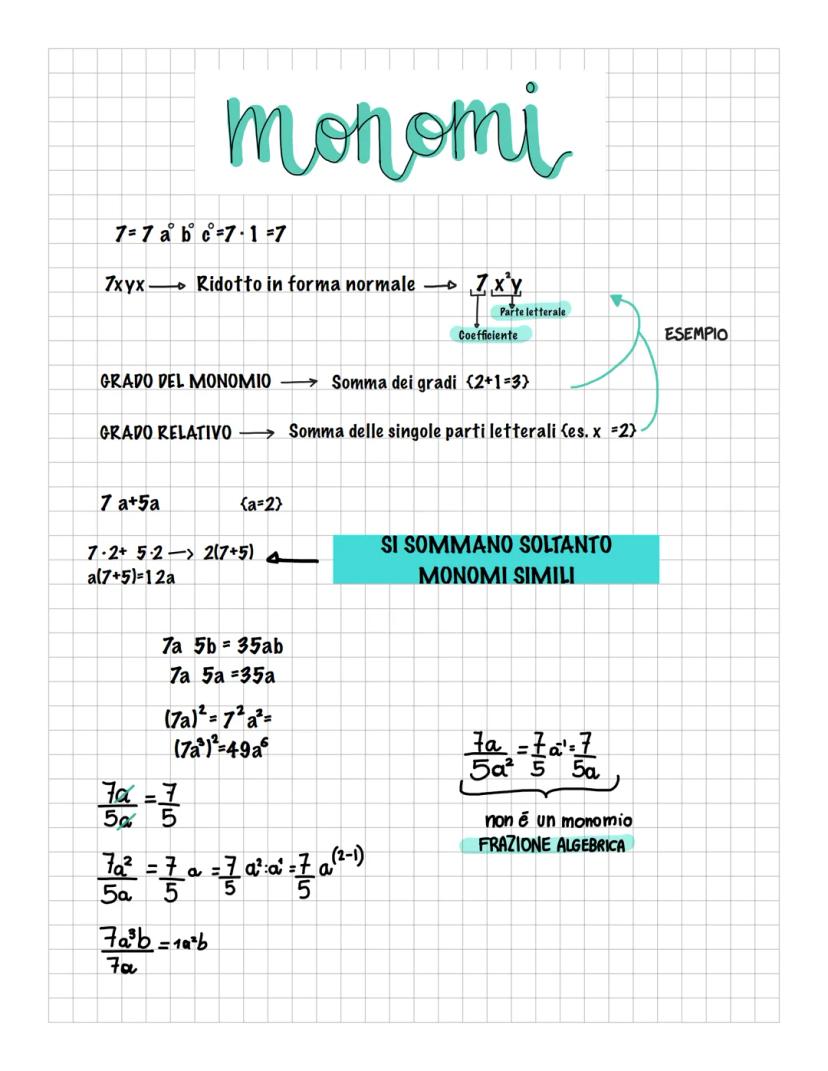 monomi
7=7 a° b° c°=7·1=7
7xyx → Ridotto in forma normale → 7 x²y
Parte letterale
Coefficiente
ESEMPIO
GRADO DEL MONOMIO → Somma dei gradi {2+1=3}
GRADO RELATIVO → Somma delle singole parti letterali {es. x =2}
7 a+5a {a=2}
7·2+ 5·2 —> 2(7+5)
a(7+5)=12a
SI SOMMANO SOLTANTO
MONOMI SIMILI
7a 5b = 35ab
7a 5a =35a
(7a)²= 7²a²=
(7a³)²=49a⁶
7a/5a² = 7/5 a⁻¹ = 7/5a
non é un monomio
FRAZIONE ALGEBRICA
7a/5a = 7/5
7a²/5a = 7/5 a = 7/5 a²:a¹ = 7/5 a⁽²⁻¹⁾
7a³b/7a = 1a²b